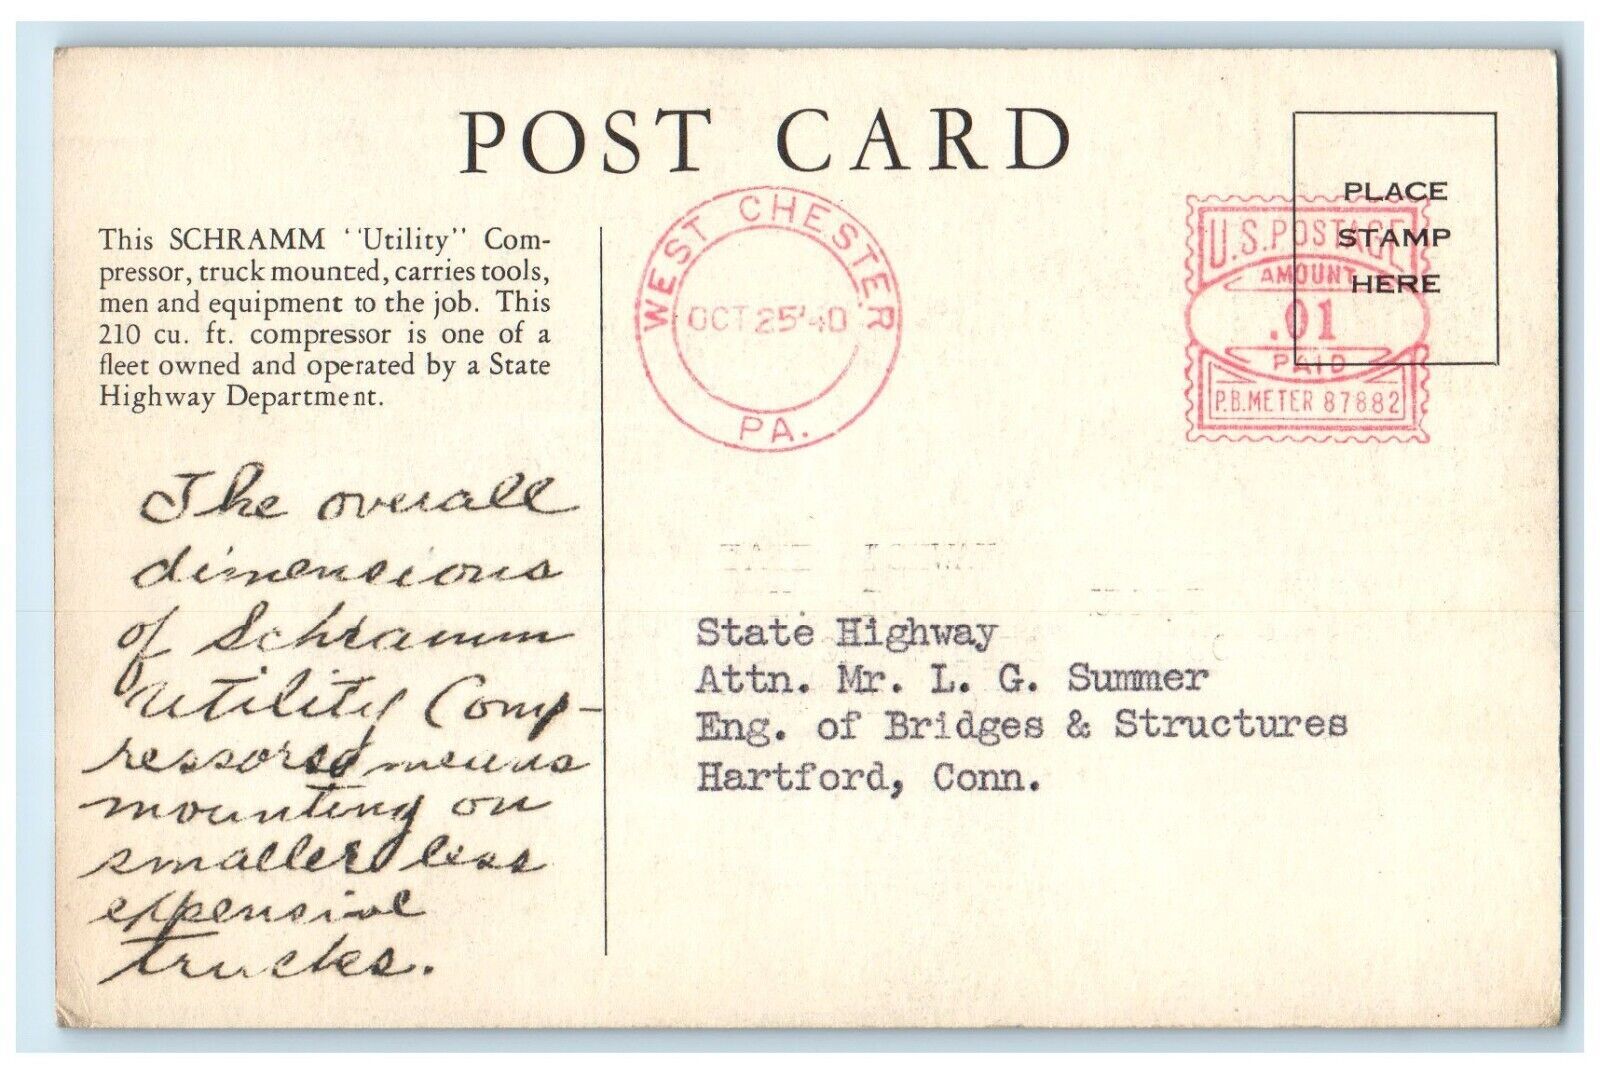 POST CARD
PLACE
STAMP
HERE
U.S. POSTAGE
AMOUNT
.01
PAID
P.B. METER 87882
WEST CHESTER
OCT 25 '40
PA.
This SCHRAMM "Utility" Com-
pressor, truck mounted, carries tools,
men and equipment to the job. This
210 cu. ft. compressor is one of a
fleet owned and operated by a State
Highway Department.
The overall
dimensions
of Schramm
Utility Comp-
ressors means
mounting on
smaller less
expensive
trucks.
State Highway
Attn. Mr. L. G. Summer
Eng. of Bridges & Structures
Hartford, Conn.